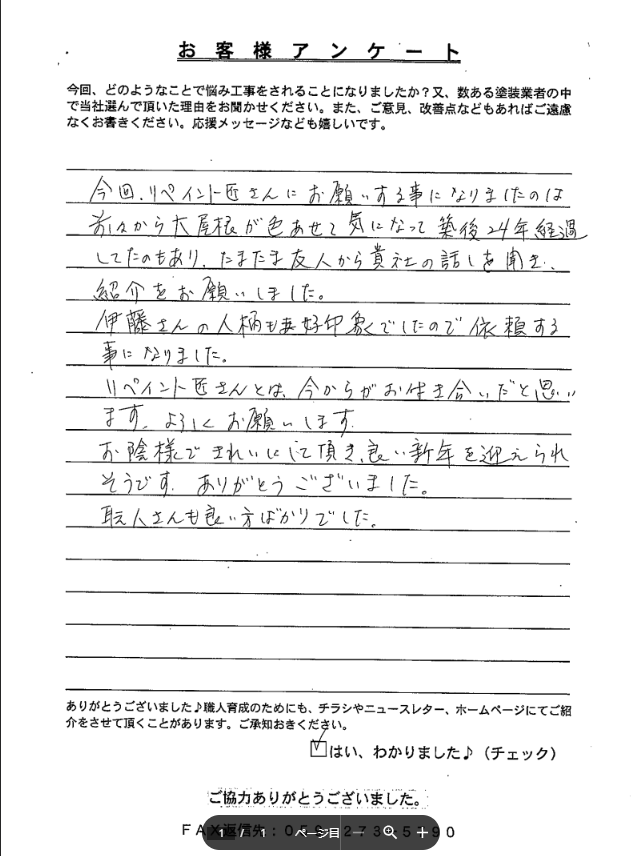 お客様アンケート
今回、どのようなことで悩み工事をされることになりましたか？又、数ある塗装業者の中
で当社選んで頂いた理由をお聞かせください。また、ご意見、改善点などもあればご遠慮
なくお書きください。応援メッセージなども嬉しいです。
今回、リペイント匠さんにお願いする事になりましたのは
前々から大屋根が色あせて気になって築後24年経過
してたのもあり、たまたま友人から貴社の話しを聞き、
紹介をお願いしました。
伊藤さんの人柄も好印象でしたので依頼する
事になりました。
リペイント匠さんとは、今からがお付き合いだと思い
ます。よろしくお願いします。
お陰様できれいにして頂き、良い新年を迎えられ
そうです。ありがとうございました。
職人さんも良い方ばかりでした。
ありがとうございました♪職人育成のためにも、チラシやニュースレター、ホームページにてご紹
介をさせて頂くことがあります。ご承知おきください。
はい、わかりました♪（チェック）
ご協力ありがとうございました。
FAX返信先：
1 / 1 ページ目